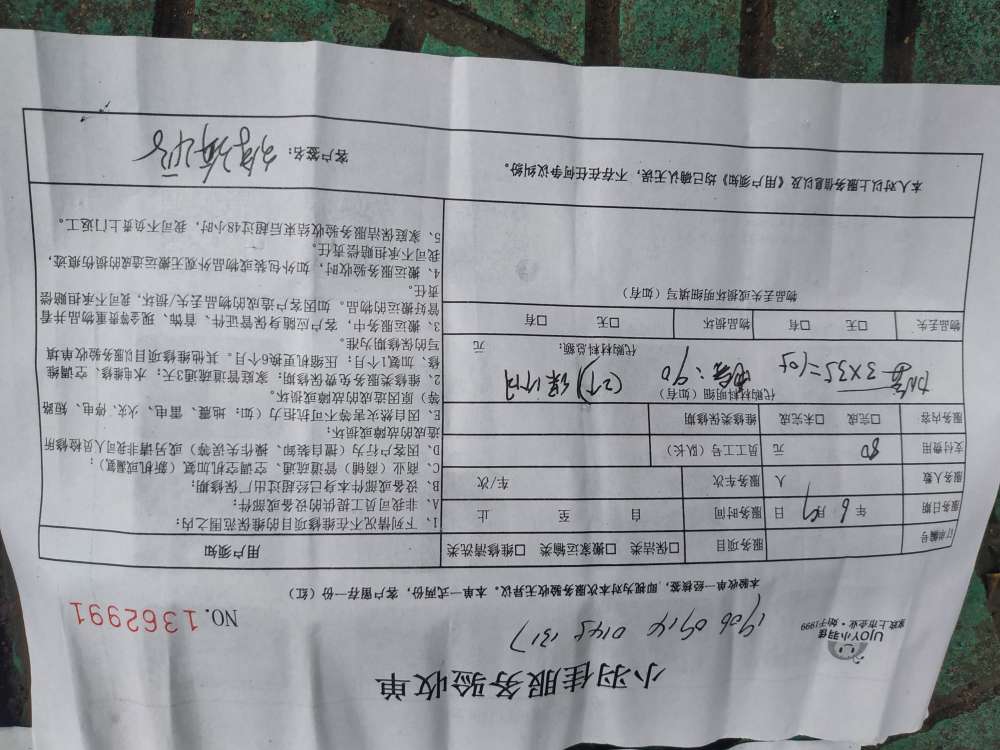 小羽佳服务验收单
UJOY小羽佳
家政上市企业·始于1999
1906 0914 0145 1317
NO. 1362991
本验收单一经签接，即视为对本次服务验收无异议。本单一式两份，客户留存一份（红）
订单编号 服务项目 □保洁类 □搬家运输类 □维修清洗类
服务日期 年 6 月 日 服务时间 自 至 止
服务人数 人 服务车次 车/次
支付费用 80 元 员工工号（队长）
服务内容 □完成 □未完成 维修类保修期
代购材料明细（如有）
3×35=105
：90
代购材料总额： 元
物品丢失 □无 □有 物品损坏 □无 □有
物品丢失或损坏明细填写（如有）
用户须知
1、下列情况不在维修项目的维保范围之内：
A、非我司员工提供的设备或部件；
B、设备或部件本身已经超过出厂保修期；
C、商业（商铺）管道疏通、空调空机加氨（新机或漏氟）；
D、因客户行为（擅自装卸、操作失误等）或另请非我司人员检修所
造成的故障或损坏；
E、因自然灾害等不可抗力（如：地震、雷电、火灾、停电、短路
等）原因造成的故障或损坏。
2、维修类服务免费保修期：家庭管道疏通3天；水电维、空调维
修、加氨1个月；压缩机更换6个月。其他维修项目以服务验收单填
写的保修期为准。
3、搬运服务中，客户应随身保管证件、首饰、现金等贵重物品并看
管好搬运的物品。如因客户造成的物品丢失/损坏，我司不承担赔偿
责任。
4、搬运服务验收时，如外包装或物品外观无搬运造成的损伤痕迹，
我司不承担赔偿责任。
5、家庭保洁服务验收结束后超过48小时，我司不负责上门返工。
本人对以上服务信息以及《用户须知》均已确认无误，不存在任何争议纠纷。
客户签名：